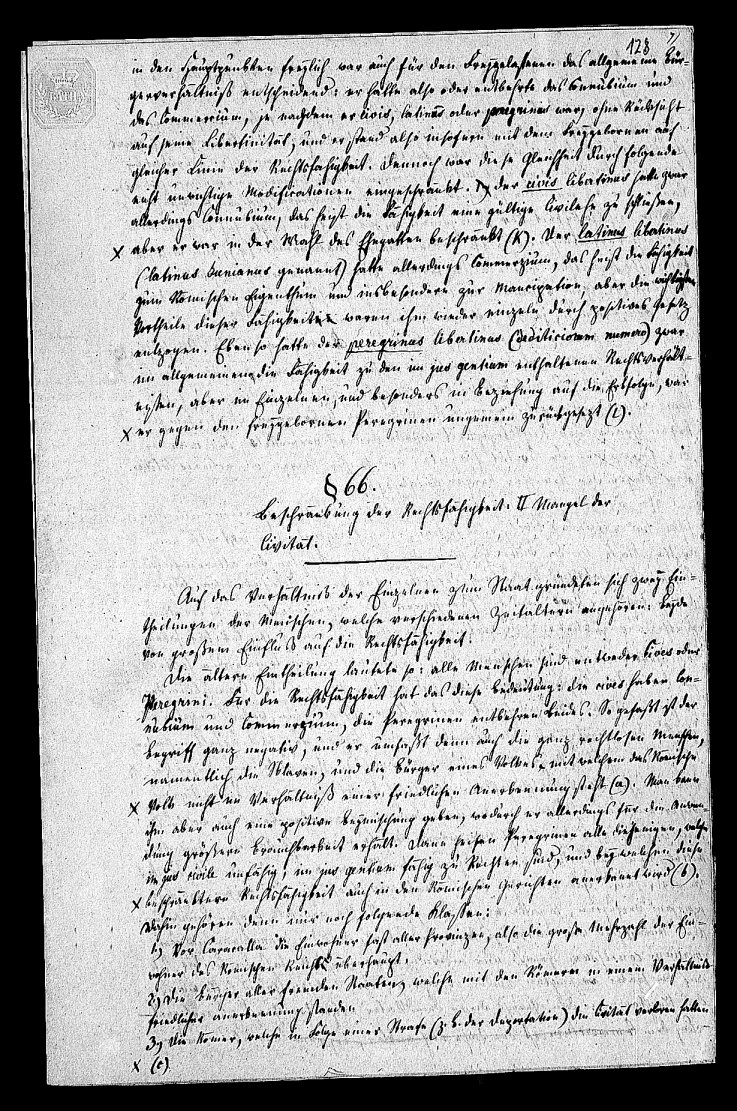 128
in den Hauptpunkten freylich war auch für den Freygelassenen das allgemeine Bür-
gerverhältniß entscheidend: er hatte also oder entbehrte das Connubium und
das Commercium, je nachdem er civis, latinus oder peregrinus war, ohne Rücksicht
auf seine Libertinität, und er stand also insofern mit dem Freygebornen auf
gleicher Linie der Rechtsfähigkeit. Dennoch war diese Gleichheit durch folgende
nicht unwichtige Modificationen eingeschränkt. Der civis libertinus hatte zwar
allerdings Connubium, das heißt die Fähigkeit eine gültige Civilehe zu schließen,
x aber er war in der Wahl des Ehegatten beschränkt (k). Der latinus libertinus
(latinus Junianus genannt) hatte allerdings Commercium, das heißt die Fähigkeit
zum Römischen Eigenthum und insbesondere zur Mancipation, aber die wichtigsten
Vortheile dieser Fähigkeit waren ihm wieder einzeln durch positives Gesetz
entzogen. Eben so hatte der peregrinus libertinus (dediticiorum numero) zwar
im allgemeinen die Fähigkeit zu den im jus gentium enthaltenen Rechtsverhält-
nissen, aber im Einzelnen, und besonders in Beziehung auf die Erbfolge, war
x er gegen den freygebornen Peregrinen ungemein zurückgesetzt (l).
§ 66.
Beschränkung der Rechtsfähigkeit. II Mangel der
Civität.
Auf das Verhältniß der Einzelnen zum Staat gründeten sich zwey Ein-
theilungen der Menschen, welche verschiedenen Zeitaltern angehören: beyde
von großem Einfluß auf die Rechtsfähigkeit.
Die ältere Eintheilung lautete so: alle Menschen sind entweder Cives oder
Peregrini. Für die Rechtsfähigkeit hat das diese Bedeutung: die cives haben Con-
nubium und Commercium, die Peregrinen entbehren Beides. So gefaßt ist der
Begriff ganz negativ, und er umfaßt denn auch die ganz rechtlosen Menschen,
namentlich die Sklaven, und die Bürger eines Volkes, mit welchem das Römische
x Volk nicht im Verhältniß einer friedlichen Anerkennung steht (a). Man kann
ihm aber auch eine positive Beymischung geben, wodurch er allerdings für die Anwen-
dung größere Brauchbarkeit erhält. Dann heißen Peregrinen alle diejenigen, welche
im jus civile unfähig, im jus gentium fähig zu Rechten sind, und bey welchen diese
x beschränktere Rechtsfähigkeit auch in den Römischen Gerichten anerkannt wird (b).
Dahin gehören denn nur noch folgende Klassen:
1) Vor Caracalla die Einwohner fast aller Provinzen, also die große Mehrzahl der Ein-
wohner des Römischen Reichs überhaupt.
2) Die Bürger aller fremden Staaten, welche mit den Römern in einem Verhältniß
friedlicher Anerkennung standen
3) Die Römer, welche in Folge einer Strafe (z. B. der Deportation) die Civität verloren hatten
x (c)